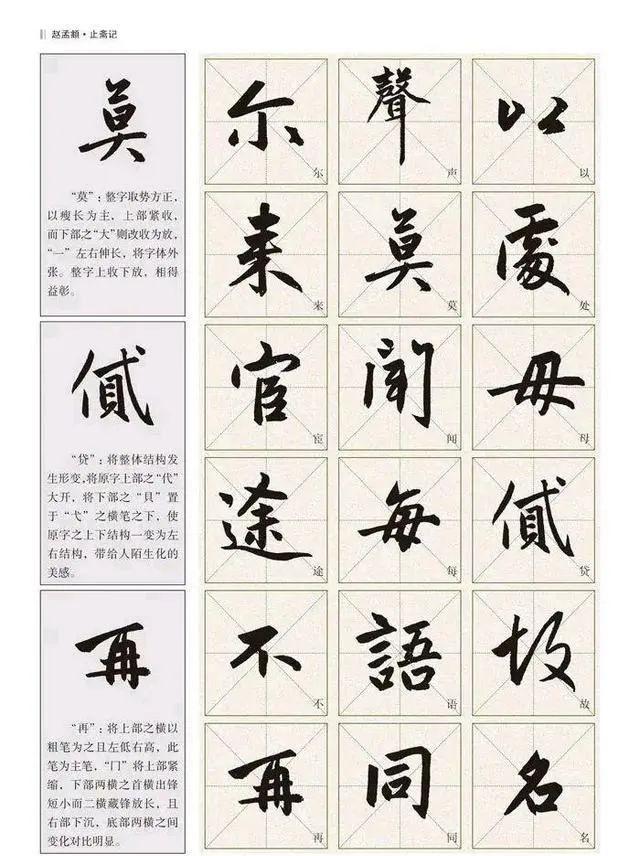 赵孟頫·止斋记
莫
“莫”:整字取势方正,
以瘦长为主,上部紧收,
而下部之“大”则改收为放,
“一”左右伸长,将字体外
张。整字上收下放,相得
益彰。
貸
“贷”:将整体结构发
生形变,将原字上部之“代”
大开,将下部之“貝”置
于“弋”之横笔之下,使
原字之上下结构一变为左
右结构,带给人陌生化的
美感。
再
“再”:将上部之横以
粗笔为之且左低右高,此
笔为主笔,“冂”将上部紧
缩,下部两横之首横出锋
短小而二横藏锋放长,且
右部下沉,底部两横之间
变化对比明显。
以 以
處 处
毋 母
貸 贷
故 故
名 名
聲 声
莫 莫
聞 闻
每 每
語 语
同 同
尔 尔
来 来
宦 宦
途 途
不 不
再 再